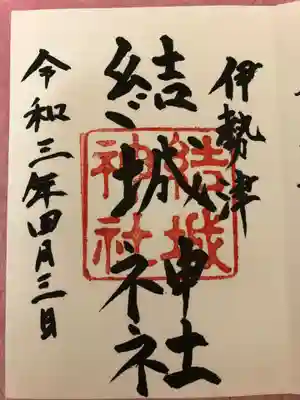 伊勢津
結城神社
結城
神社
令和三年四月三日